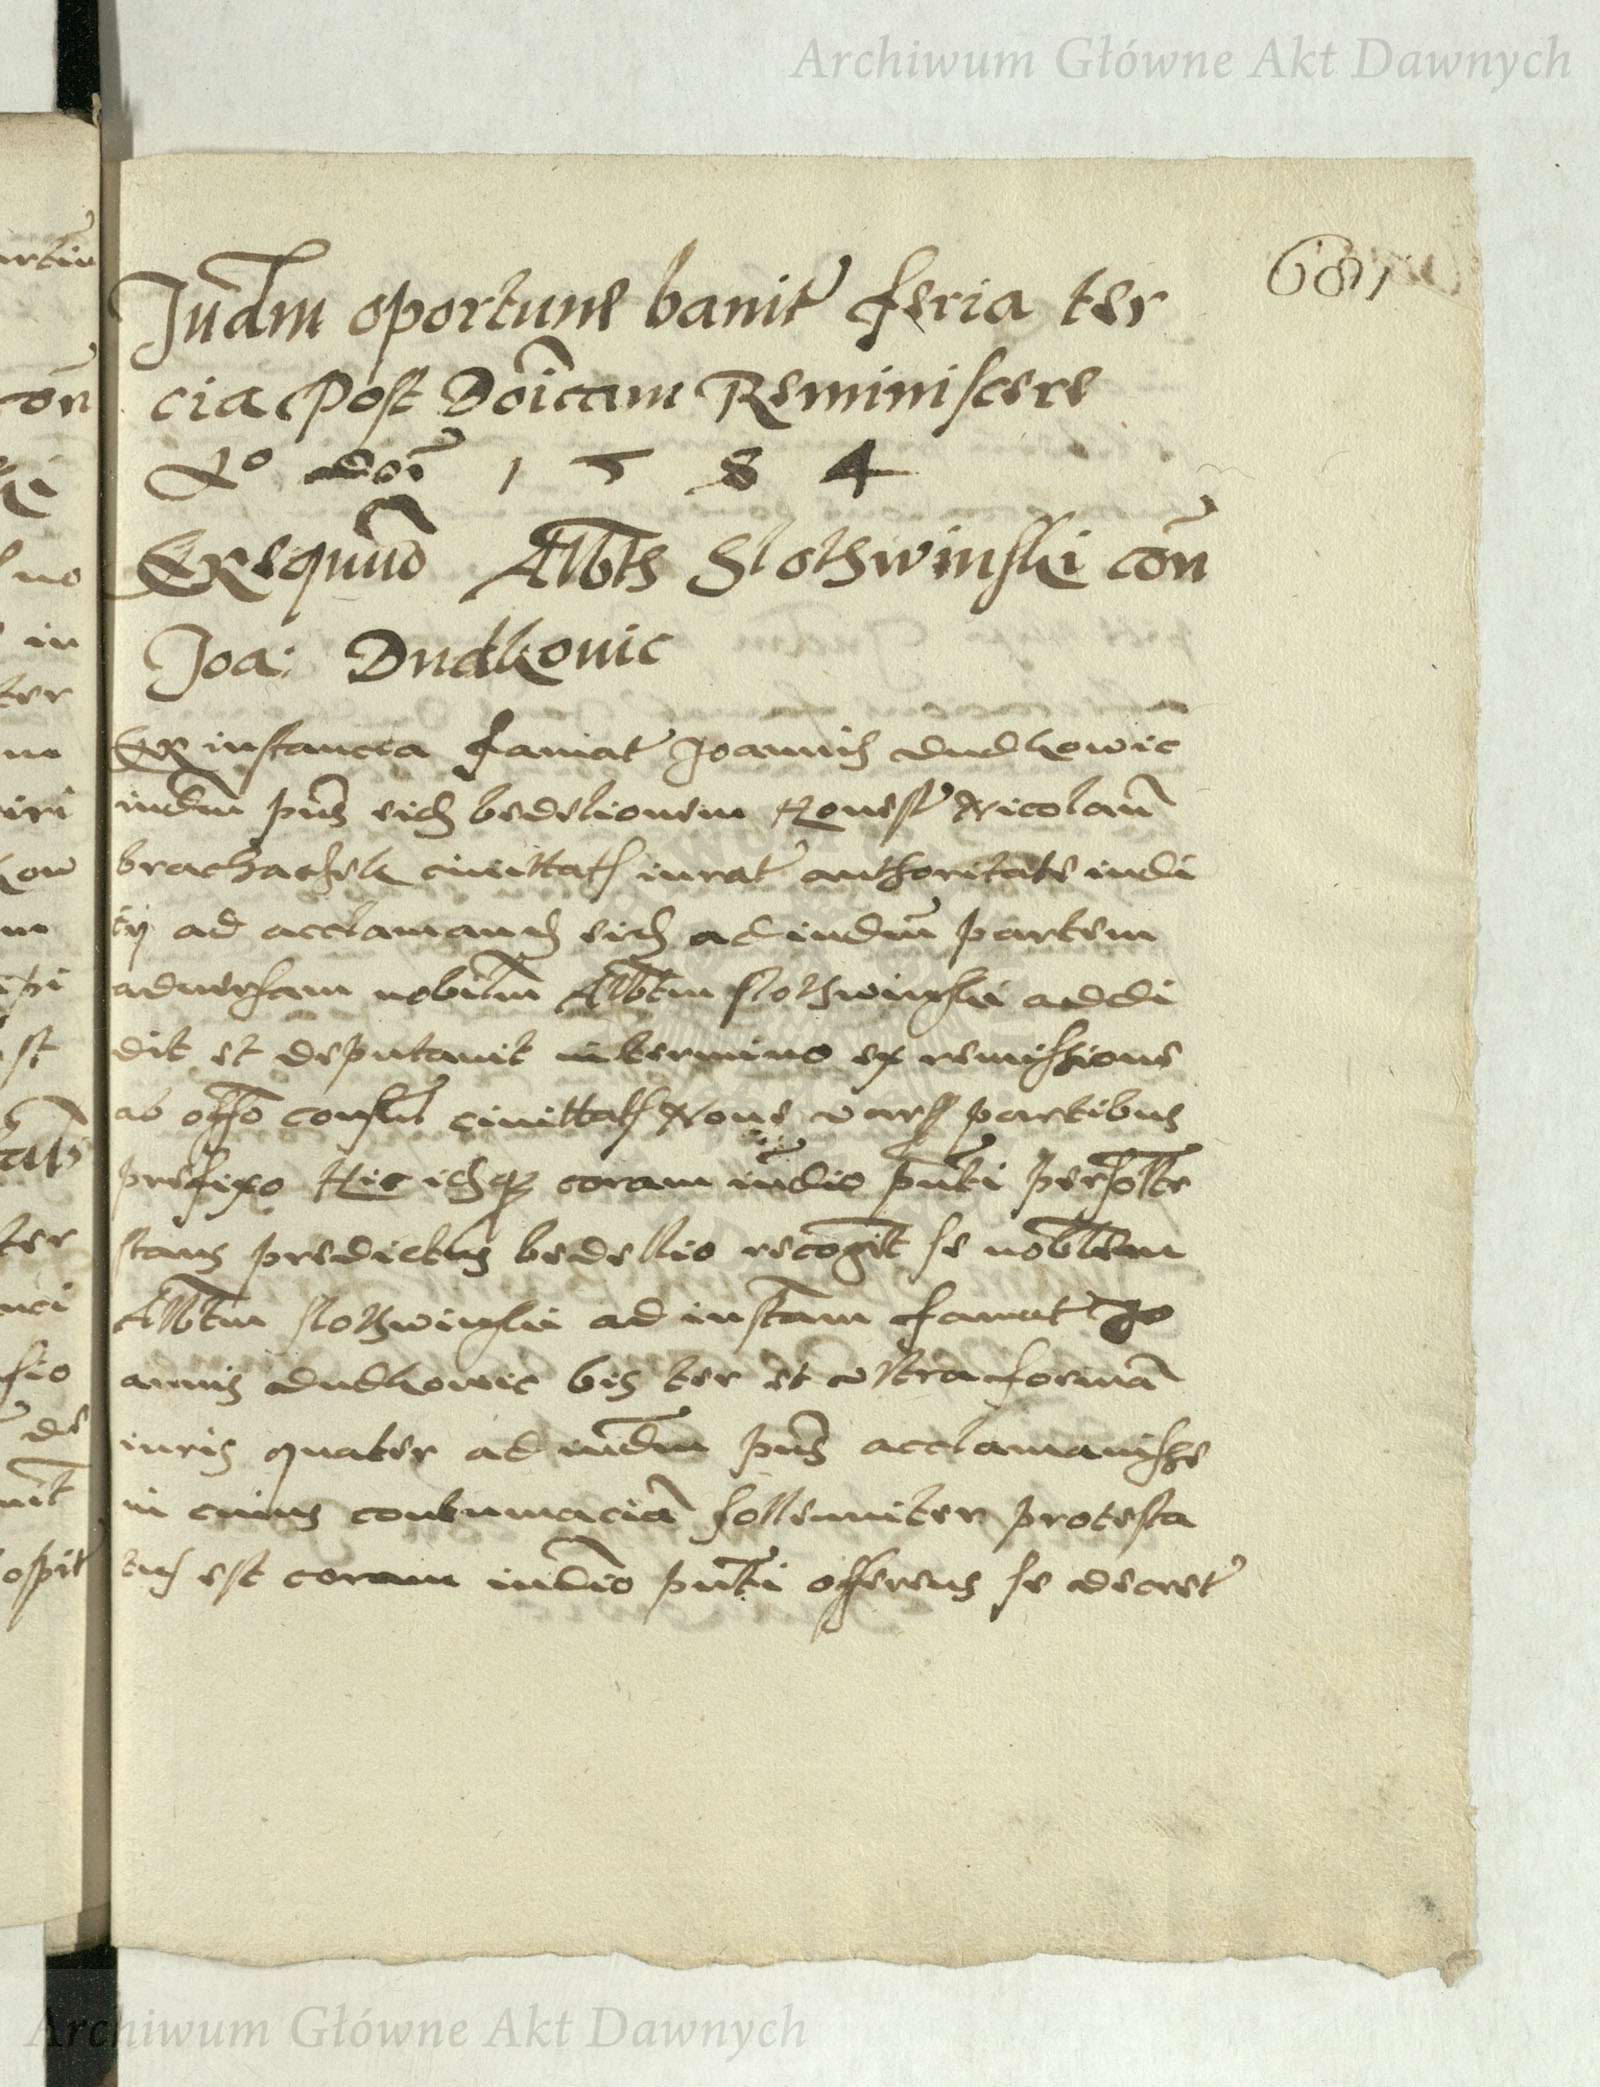 Archiwum Główne Akt Dawnych
681
Judm oportune banit feria ter
cia Post Doicam Reminiscere
Ao doi 1 5 8 4
Exequuo Albth Slothwinski con
Joa: Dudkouic
Ex instancia famat Joannis Dudkowic
iudm pns eids bedelionem Honest Nicolau
civittats iurat authoritate iudi
cij ad acclamand eids ad iudm partem
aduersam nobilm Albtm slothwinski addi
dit et deputauit in termino ex remissione
ab offo consul civittats Noue vars partibus
prefixo Hic idsq coram iudio pnti personlr
stans predictus bedellio recognit se noblem
Albtm slothwinski ad instam famat Jo
annis Dudkowic bis ter et vltra forma
iuris quater ad iudm pns acclamauisse
in cuius contumacia sollenniter protesta
tus est coram iudio pnti offerens se decret
Archiwum Główne Akt Dawnych